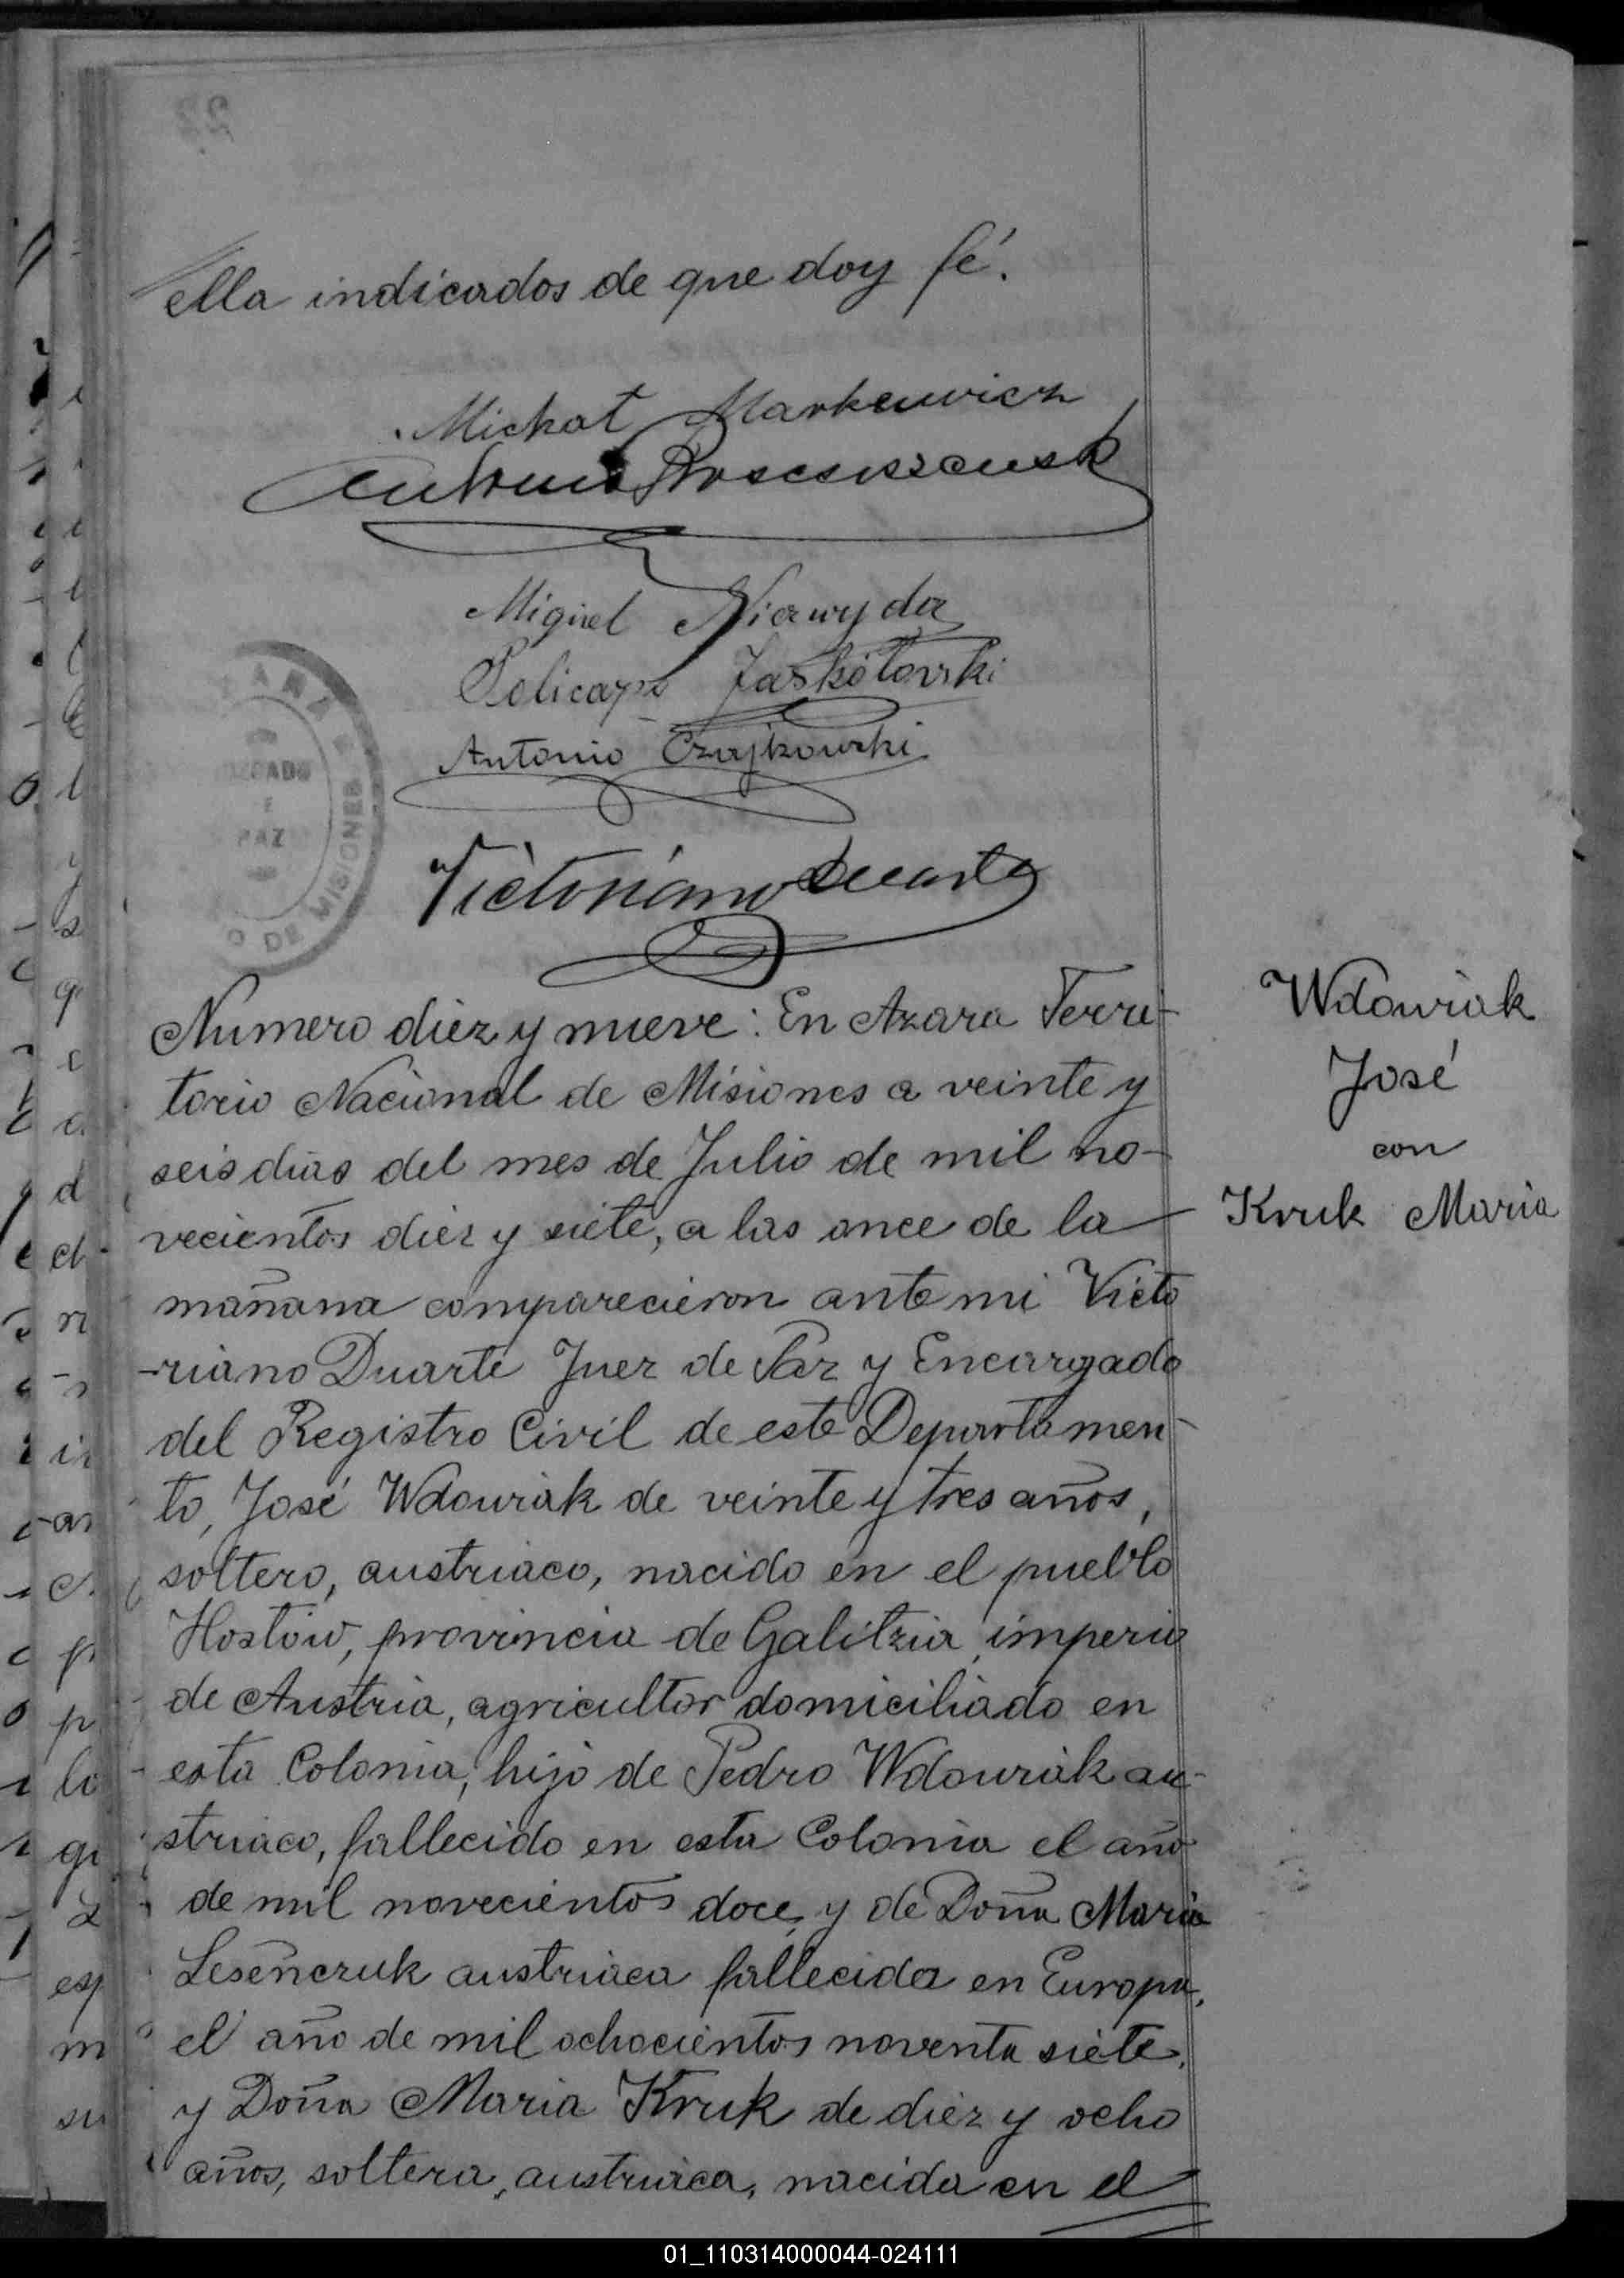 ella indicados de que doy fé.
Michał Markewicz
Antonio
Miguel Niawyda
Policarpo Jaskółowski
Antonio Czajkowski
Victoriano Duarte
JUZGADO
PAZ
DE MISIONES
Numero diez y nueve: En Azara Terri-
torio Nacional de Misiones a veinte y
seis dias del mes de Julio de mil no-
vecientos diez y siete, a las once de la
mañana comparecieron ante mi Victo
-riano Duarte Juez de Paz y Encargado
del Registro Civil de este Departamen-
to, José Wdowiak de veinte y tres años,
soltero, austriaco, nacido en el pueblo
Hostów, provincia de Galitzia, imperio
de Austria, agricultor domiciliado en
esta Colonia, hijo de Pedro Wdowiak au-
striaco, fallecido en esta Colonia el año
de mil novecientos doce, y de Doña Maria
Leseńczuk austriaca fallecida en Europa,
el año de mil ochocientos noventa siete,
y Doña Maria Kruk de diez y ocho
años, soltera, austriaca, nacida en el
Wdowiak
José
con
Kruk Maria
01_110314000044-024111